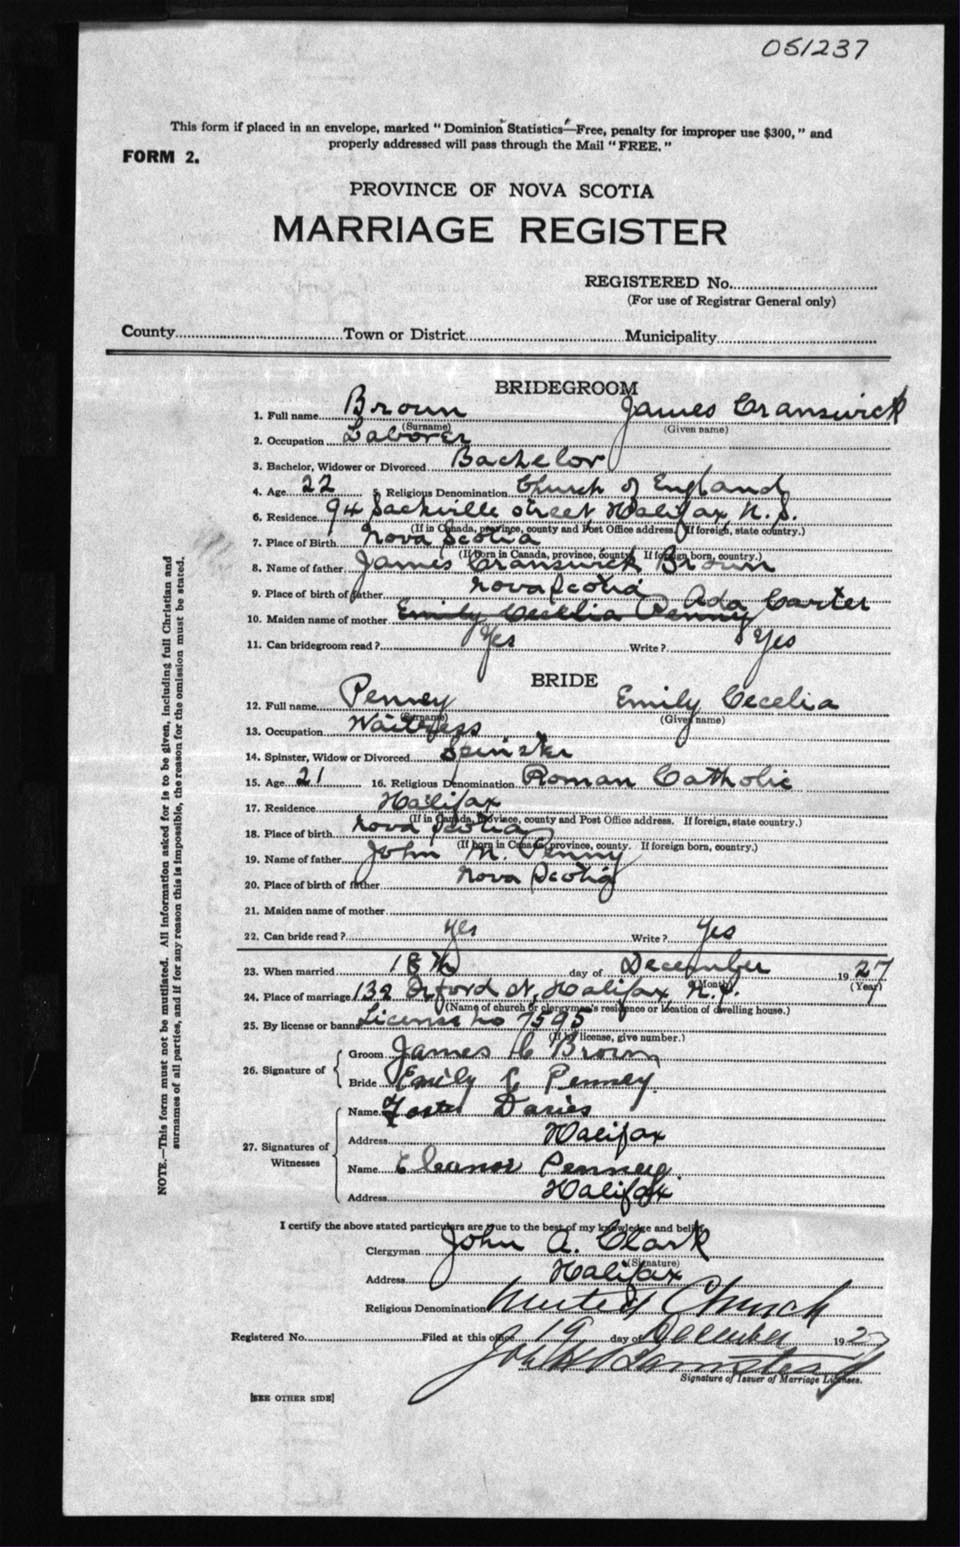 051237
This form if placed in an envelope, marked "Dominion Statistics—Free, penalty for improper use $300," and
properly addressed will pass through the Mail "FREE."
FORM 2.
PROVINCE OF NOVA SCOTIA
MARRIAGE REGISTER
REGISTERED No.
(For use of Registrar General only)
County Town or District Municipality
NOTE.—This form must not be mutilated. All information asked for is to be given, including full Christian and
surnames of all parties, and if for any reason this is impossible, the reason for the omission must be stated.
BRIDEGROOM
1. Full name Brown James Cranswick
(Surname) (Given name)
2. Occupation Laborer
3. Bachelor, Widower or Divorced Bachelor
4. Age 22 5 Religious Denomination Church of England
6. Residence 94 Sackville street Halifax, N.S.
(If in Canada, province, county and Post Office address. If foreign, state country.)
7. Place of Birth Nova Scotia
(If born in Canada, province, county. If foreign born, country.)
8. Name of father James Cranswick Brown
9. Place of birth of father Nova Scotia
Ada Carter
10. Maiden name of mother Emily Cecelia Penny
11. Can bridegroom read? Yes Write? Yes
BRIDE
12. Full name Penney Emily Cecelia
(Surname) (Given name)
13. Occupation Waitress
14. Spinster, Widow or Divorced Spinster
15. Age 21 16. Religious Denomination Roman Catholic
17. Residence Halifax
(If in Canada, province, county and Post Office address. If foreign, state country.)
18. Place of birth Nova Scotia
(If born in Canada, province, county. If foreign born, country.)
19. Name of father John M. Penny
20. Place of birth of father Nova Scotia
21. Maiden name of mother
22. Can bride read? Yes Write? Yes
23. When married 18th day of December 1927
(Month) (Year)
24. Place of marriage 132 Oxford St, Halifax, N.S.
(Name of church or clergyman's residence or location of dwelling house.)
25. By license or banns License no 7595
(If by license, give number.)
26. Signature of
Groom James C Brown
Bride Emily C Penney
27. Signatures of
Witnesses
Name Foster Davies
Address Halifax
Name Eleanor Penney
Address Halifax
I certify the above stated particulars are true to the best of my knowledge and belief.
Clergyman John A. Clark
(Signature)
Address Halifax
Religious Denomination United Church
Registered No. Filed at this office 19 day of December 1927
Signature of Issuer of Marriage Licenses.
[SEE OTHER SIDE]